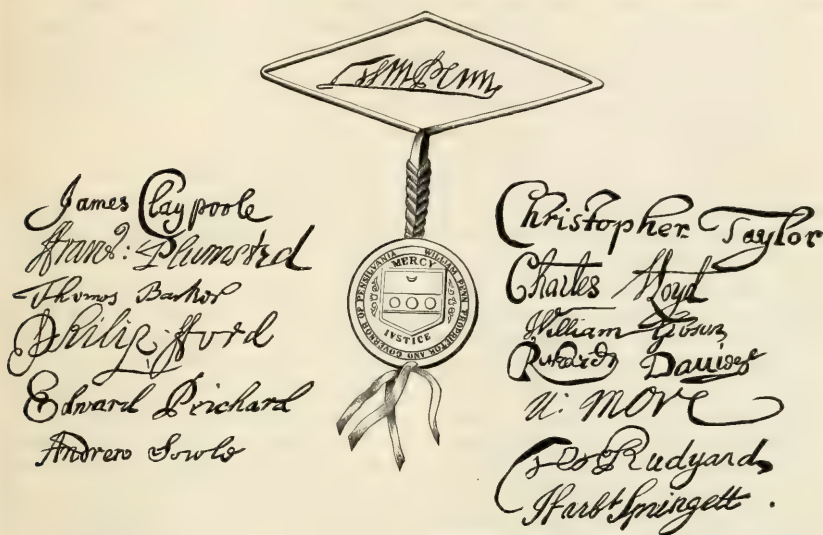 Wm Penn
James Claypoole
Plumsted
Thomas Barker
Philip: fford
Edward Prichard
Andrew Sowle
WILLIAM PENN PROPRIETOR AND GOVERNOR OF PENSILVANIA
MERCY
IVSTICE
Christopher Taylor
Charles Lloyd
William
Richard Davies
N: More
Tho Rudyard
Harbt Springett.